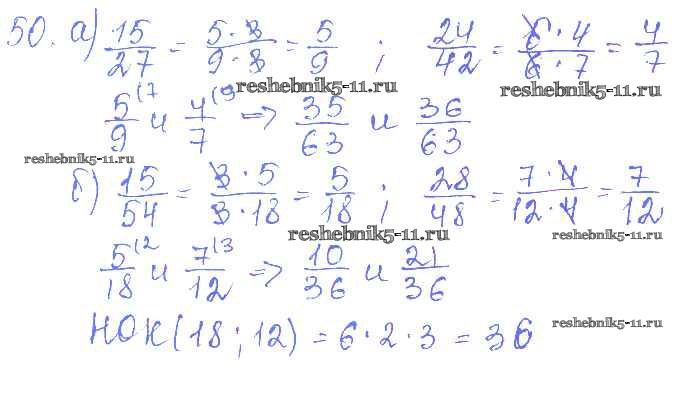 50. а) 15/27 = 5·3/9·3 = 5/9 ; 24/42 = 6·4/6·7 = 4/7
reshebnik5-11.ru reshebnik5-11.ru
5/9 (7 и 4/7 (9 => 35/63 и 36/63
reshebnik5-11.ru
б) 15/54 = 3·5/3·18 = 5/18 ; 28/48 = 7·4/12·4 = 7/12
reshebnik5-11.ru reshebnik5-11.ru
5/18 (2 и 7/12 (3 => 10/36 и 21/36
НОК(18;12) = 6·2·3 = 36
reshebnik5-11.ru